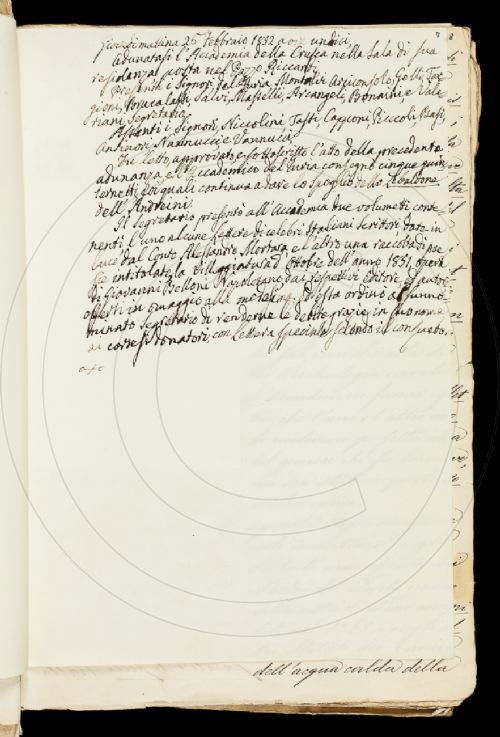 mattina 26 Febbraio 1832 a ore undici
Adunatasi l'Accademia della Crusca nella sala di sua
residenza posta nel Palazzo Riccardi
Presenti i Signori Del Furia, Montalvi Arciconsolo,
gioni, Brucalassi, Salvi, Masselli, Arcangeli, Bonaini, e Vale
riani Segretario.
Assenti i Signori, Niccolini, Capponi, Piccoli,
Antinori, Nannucci e Vannucci.
Fu letto, approvato e sottoscritto l'atto della precedente
adunanza, e l'Accademico del Furia consegnò cinque quin
ternetti, coi quali continua a dare lo spoglio dello Zibaldone
dell'Andreini.
Il segretario presentò all'Accademia due volumetti conte
nenti l'uno alcune lettere di celebri Italiani scritori date in
luce dal Conte Alessandro Mortara, e l'altro una raccolta di
sie intitolata la Villeggiatura d'Ottobre dell'anno 1831, opera
di Giovanni Belloni Napoletano dai respettivi editore ed autore
offerti in omaggio alla medesima, e questa ordinò al sunno
minato Segretario di renderne le debite grazie in suo nome
ai cortesi donatori, con lettera speciale secondo il consueto.
dell'acqua calda della